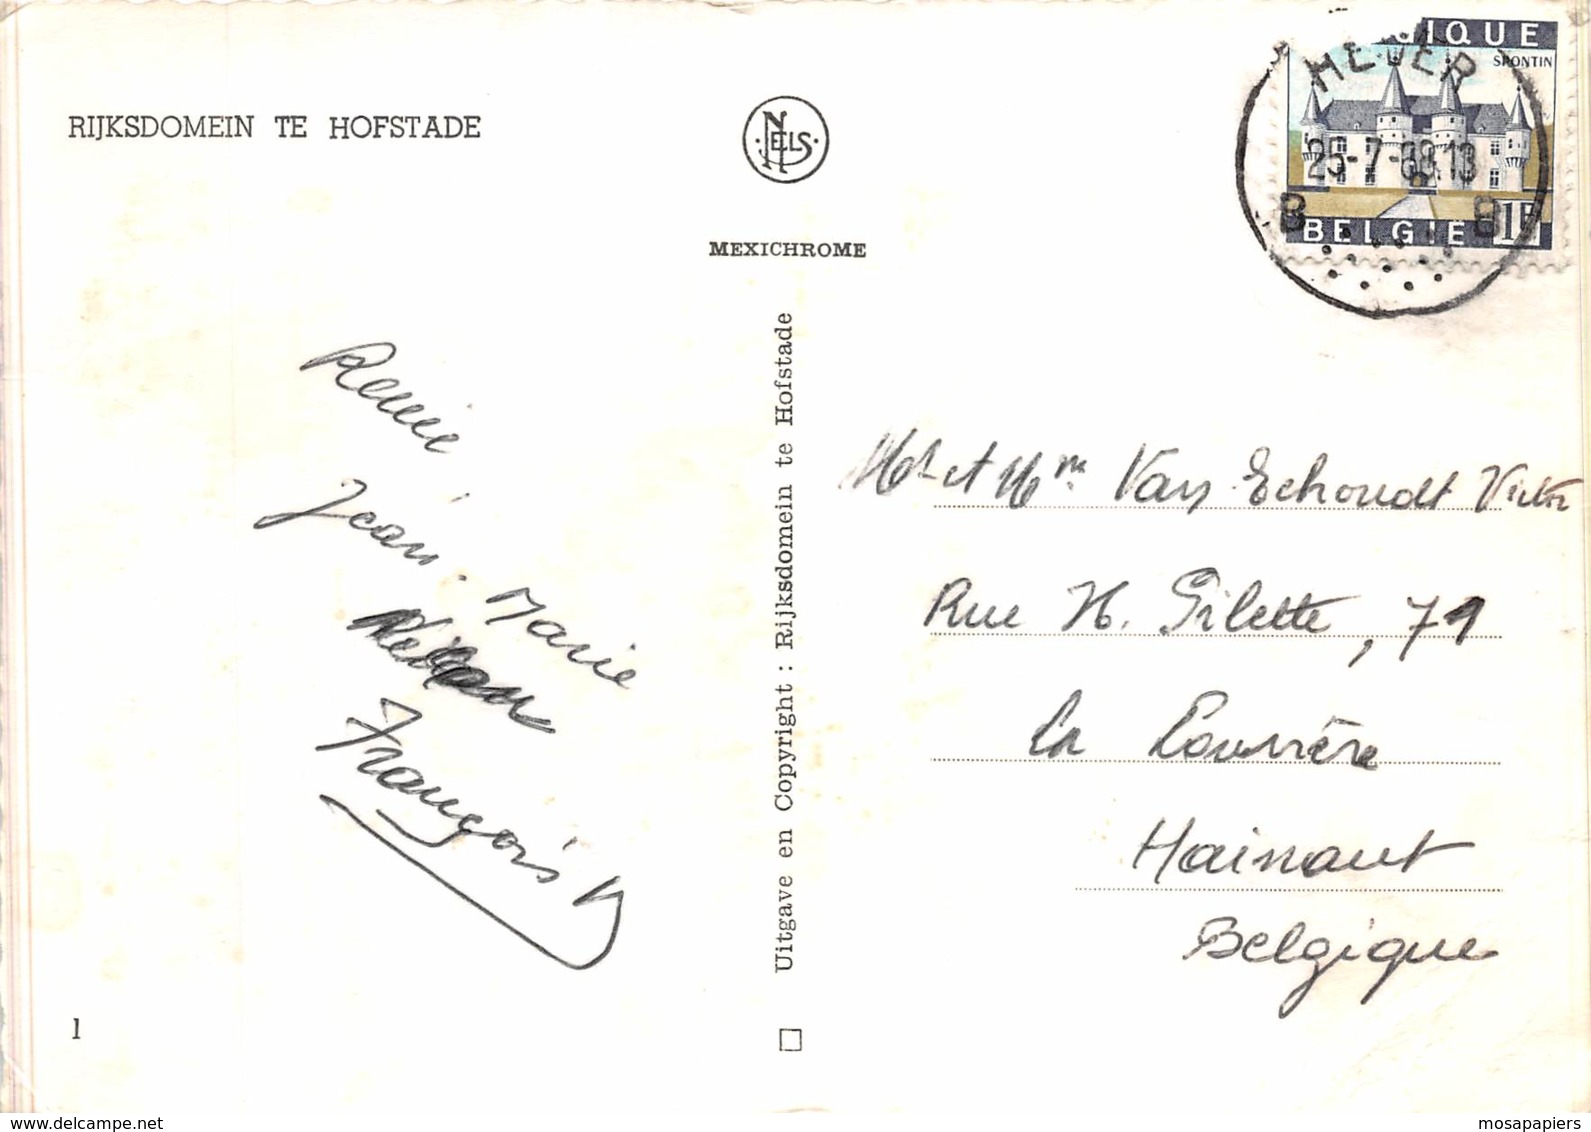 RIJKSDOMEIN TE HOFSTADE
NELS
MEXICHROME
GIQUE
SPONTIN
HEVER
25-7-68.13
B B
BELGIË 1F
Uitgave en Copyright : Rijksdomein te Hofstade
Jean-Marie
François
Mr et Mme Van Echoudt Victor
Rue H. Gilette, 71
La Louvière
Hainaut
Belgique
1
delcampe.net
mosapapiers